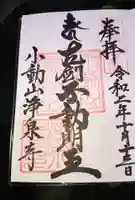 奉拝
令和二年十月十三日
不動明王
小動山浄泉寺